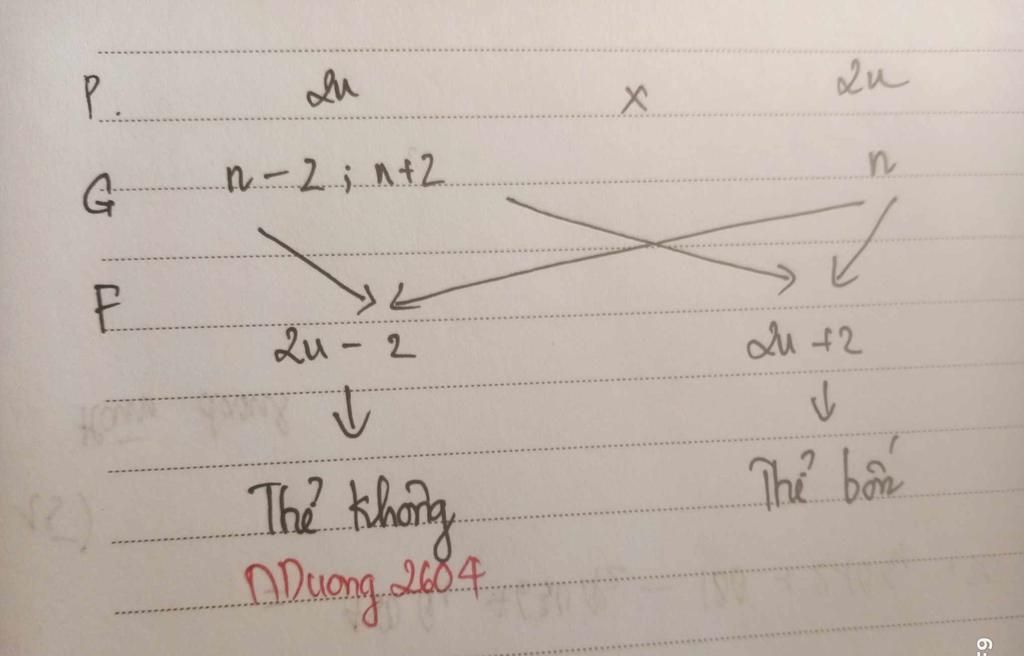 P. 2n x 2n
G n - 2 ; n+2 n
F
2n - 2 2n +2
Thể không Thể bốn
NDuong 2604